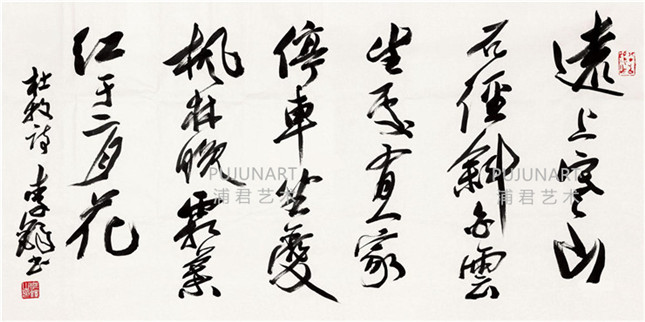 遠上寒山
石徑斜白雲
生處有人家
停車坐愛
楓林晚霜葉
红于二月花
杜牧诗 李 书
PUJUNART
浦君艺术
PUJUNART
浦君艺术